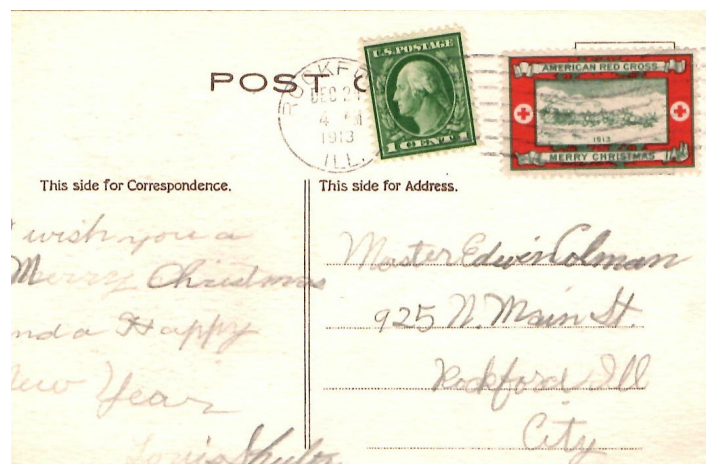 POST C
U.S. POSTAGE
1 CENT 1
ROCKF
DEC 21
4 PM
1913
ILL.
AMERICAN RED CROSS
1913
MERRY CHRISTMAS
This side for Correspondence.
This side for Address.
wish you a
Merry Christmas
nd a Happy
New Year
Louis Shultz
Master Edwin Colman
925 N. Main St.
Rockford Ill
City